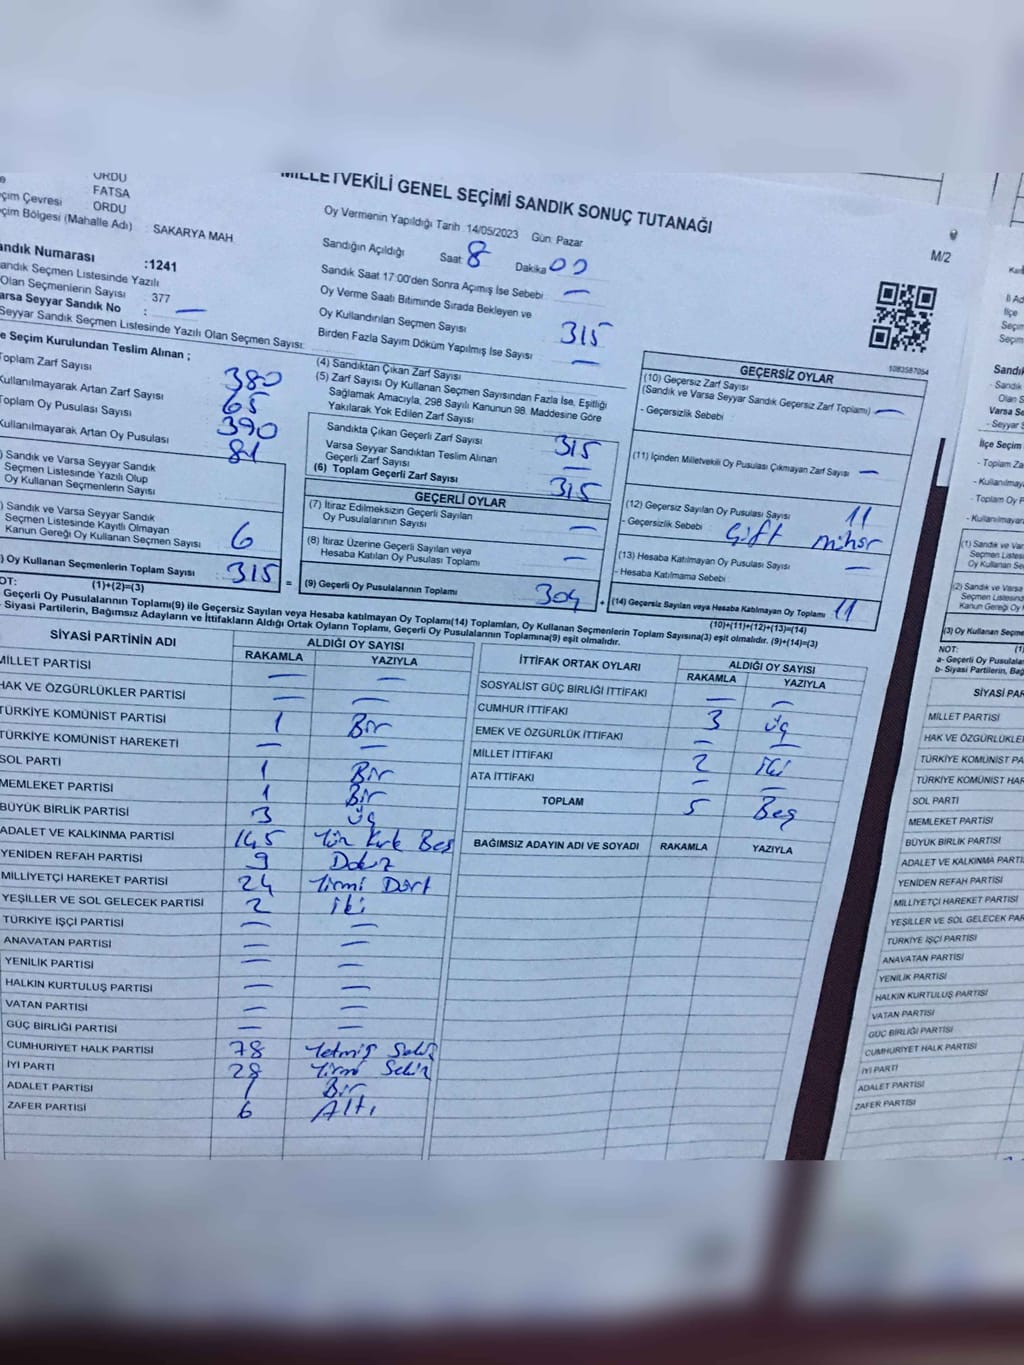 ORDU
MİLLETVEKİLİ GENEL SEÇİMİ SANDIK SONUÇ TUTANAĞI
FATSA
çim Çevresi ORDU
çim Bölgesi (Mahalle Adı) : SAKARYA MAH
M/2
andık Numarası :1241
andık Seçmen Listesinde Yazılı
Olan Seçmenlerin Sayısı : 377
arsa Seyyar Sandık No : —
Seyyar Sandık Seçmen Listesinde Yazılı Olan Seçmen Sayısı:
Oy Vermenin Yapıldığı Tarih :14/05/2023 Gün: Pazar
Sandığın Açıldığı Saat 8 Dakika 00
Sandık Saat 17:00'den Sonra Açımış İse Sebebi —
Oy Verme Saati Bitiminde Sırada Bekleyen ve
Oy Kullandırılan Seçmen Sayısı 315
Birden Fazla Sayım Döküm Yapılmış İse Sayısı —
1083587054
e Seçim Kurulundan Teslim Alınan ;
oplam Zarf Sayısı 380
Kullanılmayarak Artan Zarf Sayısı 65
Toplam Oy Pusulası Sayısı 390
Kullanılmayarak Artan Oy Pusulası 81
) Sandık ve Varsa Seyyar Sandık
Seçmen Listesinde Yazılı Olup
Oy Kullanan Seçmenlerin Sayısı
) Sandık ve Varsa Seyyar Sandık
Seçmen Listesinde Kayıtlı Olmayan
Kanun Gereği Oy Kullanan Seçmen Sayısı 6
) Oy Kullanan Seçmenlerin Toplam Sayısı 315 =
(1)+(2)=(3)
(4) Sandıktan Çıkan Zarf Sayısı
(5) Zarf Sayısı Oy Kullanan Seçmen Sayısından Fazla İse, Eşitliği
Sağlamak Amacıyla, 298 Sayılı Kanunun 98. Maddesine Göre
Yakılarak Yok Edilen Zarf Sayısı
Sandıkta Çıkan Geçerli Zarf Sayısı 315
Varsa Seyyar Sandıktan Teslim Alınan
Geçerli Zarf Sayısı —
(6) Toplam Geçerli Zarf Sayısı 315
GEÇERLİ OYLAR
(7) İtiraz Edilmeksizin Geçerli Sayılan
Oy Pusulalarının Sayısı —
(8) İtiraz Üzerine Geçerli Sayılan veya
Hesaba Katılan Oy Pusulası Toplamı —
(9) Geçerli Oy Pusulalarının Toplamı 304 +
GEÇERSİZ OYLAR
(10) Geçersiz Zarf Sayısı
(Sandık ve Varsa Seyyar Sandık Geçersiz Zarf Toplamı) —
- Geçersizlik Sebebi
(11) İçinden Milletvekili Oy Pusulası Çıkmayan Zarf Sayısı —
(12) Geçersiz Sayılan Oy Pusulası Sayısı 11
- Geçersizlik Sebebi Çift mühür
(13) Hesaba Katılmayan Oy Pusulası Sayısı —
- Hesaba Katılmama Sebebi
(14) Geçersiz Sayılan veya Hesaba Katılmayan Oy Toplamı 11
(10)+(11)+(12)+(13)=(14)
OT:
Geçerli Oy Pusulalarının Toplamı(9) ile Geçersiz Sayılan veya Hesaba katılmayan Oy Toplamı(14) Toplamları, Oy Kullanan Seçmenlerin Toplam Sayısına(3) eşit olmalıdır. (9)+(14)=(3)
- Siyasi Partilerin, Bağımsız Adayların ve İttifakların Aldığı Ortak Oyların Toplamı, Geçerli Oy Pusulalarının Toplamına(9) eşit olmalıdır.
SİYASİ PARTİNİN ADI ALDIĞI OY SAYISI
RAKAMLA YAZIYLA
MİLLET PARTİSİ — —
HAK VE ÖZGÜRLÜKLER PARTİSİ — —
TÜRKİYE KOMÜNİST PARTİSİ 1 Bir
TÜRKİYE KOMÜNİST HAREKETİ — —
SOL PARTİ 1 Bir
MEMLEKET PARTİSİ 1 Bir
BÜYÜK BİRLİK PARTİSİ 3 Üç
ADALET VE KALKINMA PARTİSİ 145 Yüz Kırk Beş
YENİDEN REFAH PARTİSİ 9 Dokuz
MİLLİYETÇİ HAREKET PARTİSİ 24 Yirmi Dört
YEŞİLLER VE SOL GELECEK PARTİSİ 2 İki
TÜRKİYE İŞÇİ PARTİSİ — —
ANAVATAN PARTİSİ — —
YENİLİK PARTİSİ — —
HALKIN KURTULUŞ PARTİSİ — —
VATAN PARTİSİ — —
GÜÇ BİRLİĞİ PARTİSİ — —
CUMHURİYET HALK PARTİSİ 78 Yetmiş Sekiz
İYİ PARTİ 28 Yirmi Sekiz
ADALET PARTİSİ 1 Bir
ZAFER PARTİSİ 6 Altı
İTTİFAK ORTAK OYLARI ALDIĞI OY SAYISI
RAKAMLA YAZIYLA
SOSYALİST GÜÇ BİRLİĞİ İTTİFAKI — —
CUMHUR İTTİFAKI 3 Üç
EMEK VE ÖZGÜRLÜK İTTİFAKI — —
MİLLET İTTİFAKI 2 İki
ATA İTTİFAKI — —
TOPLAM 5 Beş
BAĞIMSIZ ADAYIN ADI VE SOYADI RAKAMLA YAZIYLA
İl Ad
İlçe
Seçim
Sandık
- Sandık
Olan S
Varsa Se
- Seyyar S
İlçe Seçim
- Toplam Za
- Kullanılma
- Toplam Oy P
- Kullanılmayan
(1) Sandık ve Varsa
Seçmen Listesin
Oy Kullanan Se
(2) Sandık ve Varsa
Seçmen Listesinde
Kanun Gereği O
(3) Oy Kullanan Seçme
NOT: (1)
a- Geçerli Oy Pusulala
b- Siyasi Partilerin, Bağ
SİYASİ PAR
MİLLET PARTİSİ
HAK VE ÖZGÜRLÜKLE
TÜRKİYE KOMÜNİST PA
TÜRKİYE KOMÜNİST HAR
SOL PARTİ
MEMLEKET PARTİSİ
BÜYÜK BİRLİK PARTİSİ
ADALET VE KALKINMA PARTİ
YENİDEN REFAH PARTİSİ
MİLLİYETÇİ HAREKET PARTİSİ
YEŞİLLER VE SOL GELECEK PAR
TÜRKİYE İŞÇİ PARTİSİ
ANAVATAN PARTİSİ
YENİLİK PARTİSİ
HALKIN KURTULUŞ PARTİSİ
VATAN PARTİSİ
GÜÇ BİRLİĞİ PARTİSİ
CUMHURİYET HALK PARTİSİ
İYİ PARTİ
ADALET PARTİSİ
ZAFER PARTİSİ